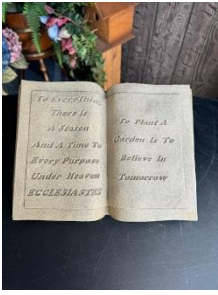 To Every Thing
There Is
A Season
And A Time To
Every Purpose
Under Heaven
ECCLESIASTES
To Plant A
Garden Is To
Believe In
Tomorrow